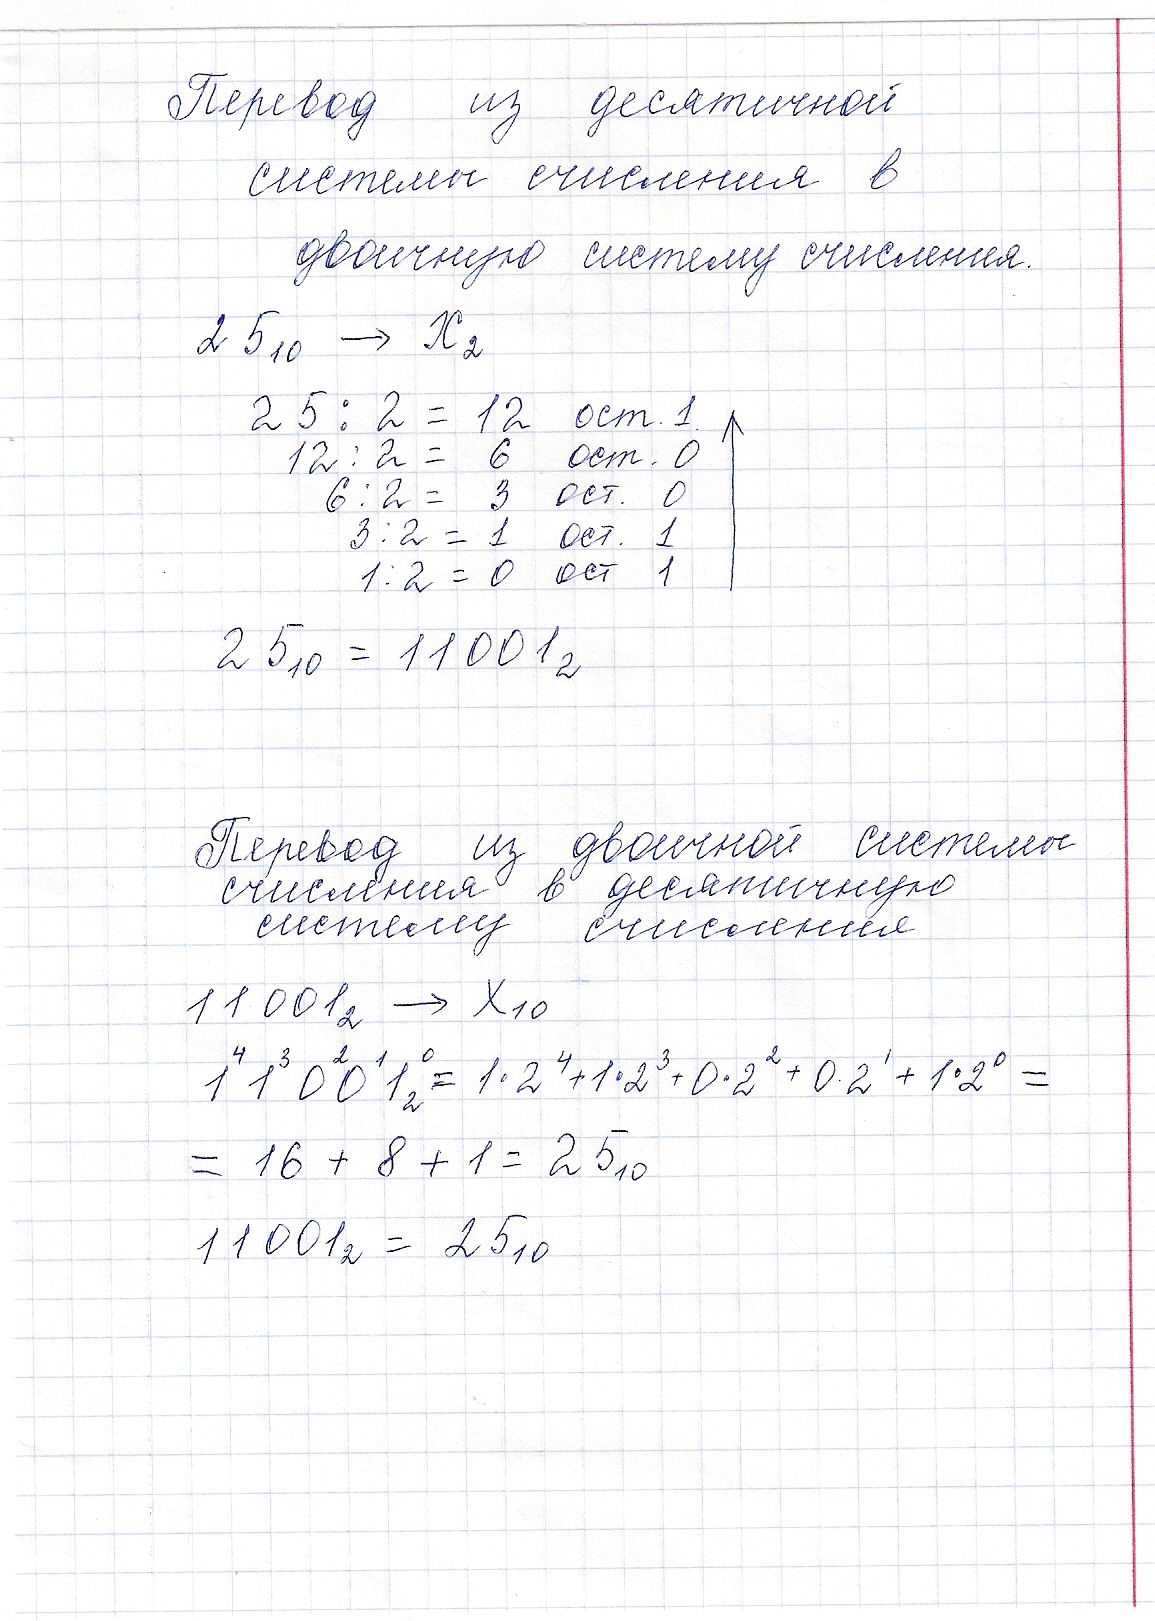 Перевод из десятичной
системы счисления в
двоичную систему счисления.
25₁₀ → X₂
25 : 2 = 12 ост. 1.
12 : 2 = 6 ост. 0
6 : 2 = 3 ост. 0
3 : 2 = 1 ост. 1
1 : 2 = 0 ост 1
25₁₀ = 11001₂
Перевод из двоичной системы
счисления в десятичную
систему счисления
11001₂ → X₁₀
1⁴1³0²0¹1⁰₂ = 1·2⁴+1·2³+0·2²+0·2¹+1·2⁰ =
= 16 + 8 + 1 = 25₁₀
11001₂ = 25₁₀